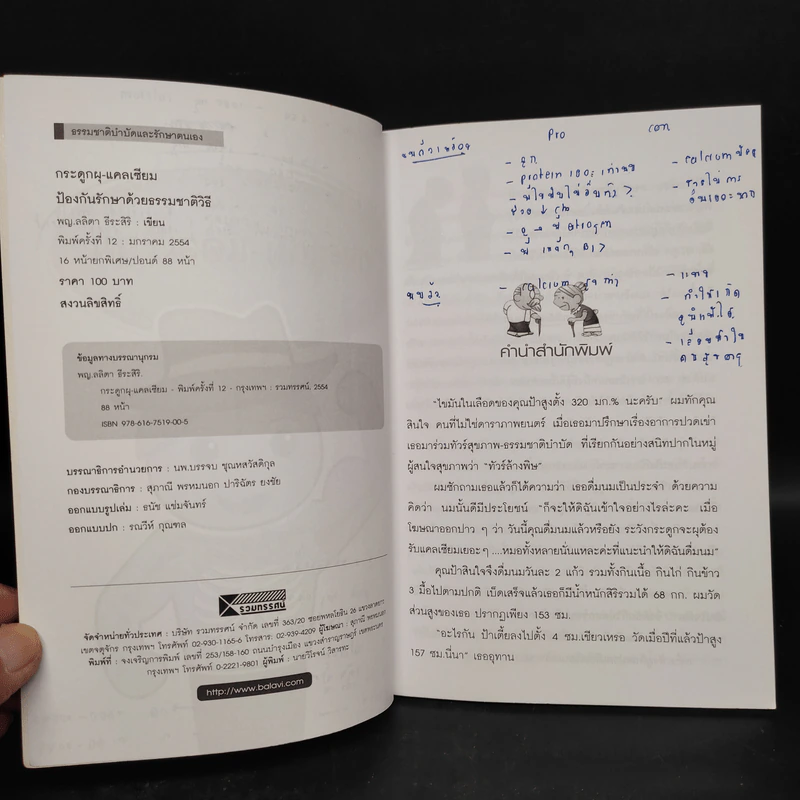 ธรรมชาติบำบัดและรักษาตนเอง
กระดูกผุ-แคลเซียม
ป้องกันรักษาด้วยธรรมชาติวิธี
พญ.ลลิตา ธีระสิริ : เขียน
พิมพ์ครั้งที่ 12 : มกราคม 2554
16 หน้ายกพิเศษ/ปอนด์ 88 หน้า
ราคา 100 บาท
สงวนลิขสิทธิ์
ข้อมูลทางบรรณานุกรม
พญ.ลลิตา ธีระสิริ.
กระดูกผุ-แคลเซียม - พิมพ์ครั้งที่ 12 - กรุงเทพฯ : รวมทรรศน์, 2554
88 หน้า
ISBN 978-616-7519-00-5
บรรณาธิการอำนวยการ : นพ.บรรจบ ชุณหสวัสดิกุล
กองบรรณาธิการ : สุภาณี พรหมนอก ปาริฉัตร ยงชัย
ออกแบบรูปเล่ม : ธนัช แช่มจันทร์
ออกแบบปก : รณวีห์ กุณฑล
รวมทรรศน์
จัดจำหน่ายทั่วประเทศ : บริษัท รวมทรรศน์ จำกัด เลขที่ 363/20 ซอยพหลโยธิน 26 แขวงลาดยาว
เขตจตุจักร กรุงเทพฯ โทรศัพท์ 02-930-1165-6 โทรสาร: 02-939-4209 ผู้โฆษณา : สุภาณี พรหมนอก
พิมพ์ที่ : จงเจริญการพิมพ์ เลขที่ 253/158-160 ถนนบำรุงเมือง แขวงสำราญราษฎร์ เขตพระนคร
กรุงเทพฯ โทรศัพท์ 0-2221-9801 ผู้พิมพ์ : นายวิโรจน์ วิสาระทะ
http://www.balavi.com
Pro con
นมถั่วเหลือง
- ถูก
- Protein เยอะ
- calcium น้อย
นมวัว
- calcium
- แพง
คำนำสำนักพิมพ์
"ไขมันในเลือดของคุณป้าสูงตั้ง 320 มก.% นะครับ" ผมทักคุณ
สินใจ คนที่ไม่ใช่ดาราภาพยนตร์ เมื่อเธอมาปรึกษาเรื่องอาการปวดเข่า
เธอมาร่วมทัวร์สุขภาพ-ธรรมชาติบำบัด ที่เรียกกันอย่างสนิทปากในหมู่
ผู้สนใจสุขภาพว่า "ทัวร์ล้างพิษ"
ผมซักถามเธอแล้วก็ได้ความว่า เธอดื่มนมเป็นประจำ ด้วยความ
คิดว่า นมนั้นดีมีประโยชน์ "ก็จะให้ดิฉันเข้าใจอย่างไรล่ะคะ เมื่อ
โฆษณาออกปาว ๆ ว่า วันนี้คุณดื่มนมแล้วหรือยัง ระวังกระดูกจะผุต้อง
รับแคลเซียมเยอะๆ ....หมอทั้งหลายนั่นแหละค่ะที่แนะนำให้ดิฉันดื่มนม"
คุณป้าสินใจจึงดื่มนมวันละ 2 แก้ว รวมทั้งกินเนื้อ กินไก่ กินข้าว
3 มื้อไปตามปกติ เบ็ดเสร็จแล้วเธอก็มีน้ำหนักสิริรวมได้ 68 กก. ผมวัด
ส่วนสูงของเธอ ปรากฏเพียง 153 ซม.
"อะไรกัน ป้าเตี้ยลงไปตั้ง 4 ซม.เชียวเหรอ วัดเมื่อปีที่แล้วป้าสูง
157 ซม.นี่นา" เธออุทาน